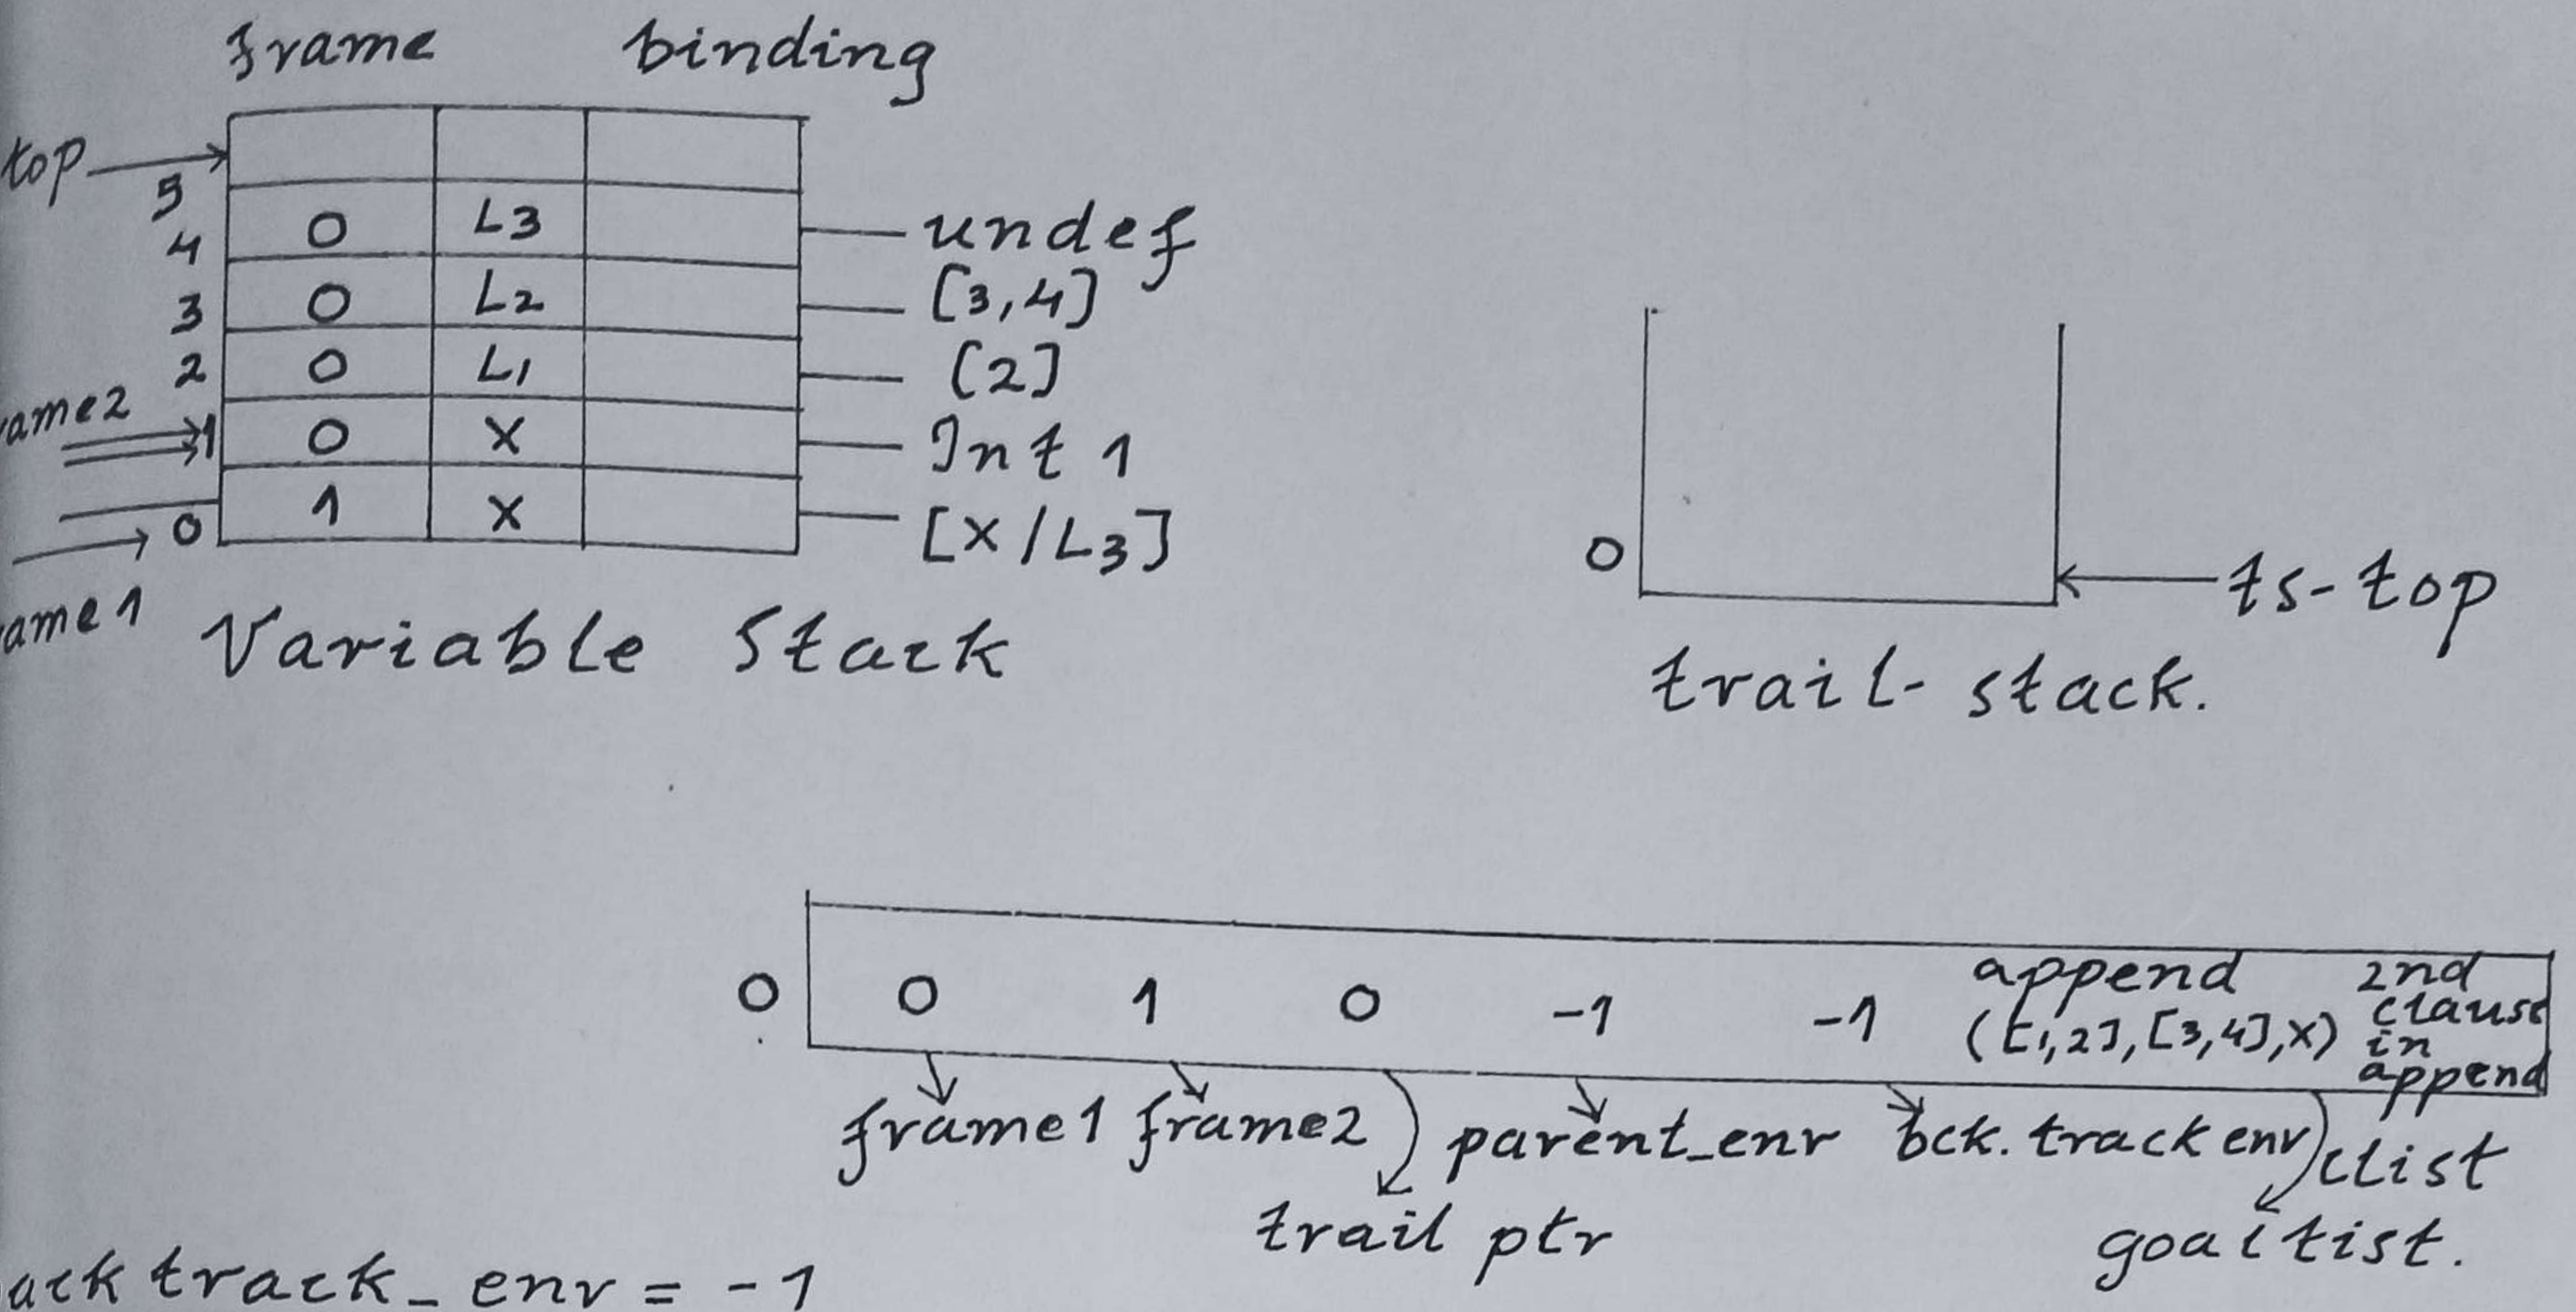 frame binding
top
5
4 0 L3 undef
3 0 L2 [3,4]
2 0 L1 [2]
ame2 1 0 X Int 1
0 1 X [X/L3]
ame1
Variable Stack
0
ts-top
trail-stack.
0 0 1 0 -1 -1 append 2nd
([1,2],[3,4],X) clause
in
append
frame1 frame2 parent_env bck.track env clist
trail ptr goal list.
ack track_env = -1